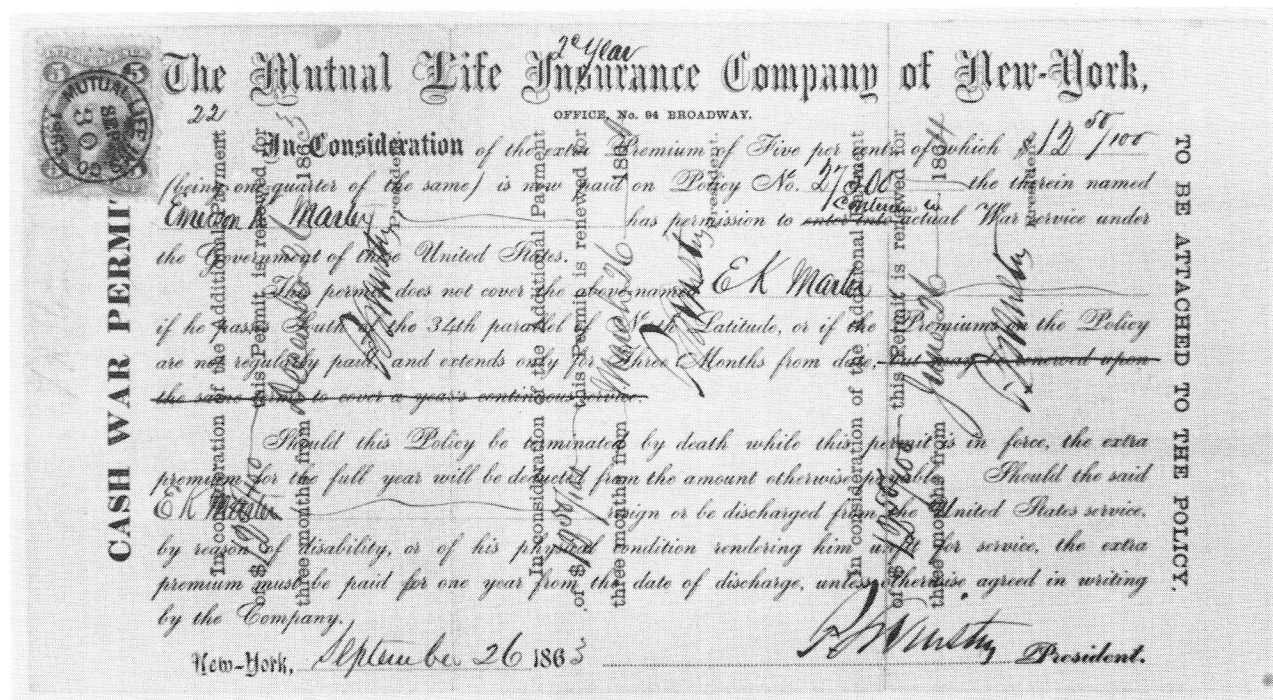 2d Year
The Mutual Life Insurance Company of New-York,
22
OFFICE, No. 94 BROADWAY.
In Consideration of the extra Premium of Five per cent. of which $12 50/100
(being one quarter of the same) is now paid on Policy No. the therein named
has permission to enter into continue in actual War service under
the Government of these United States.
This permit does not cover the above-named E K Martin
if he passes South of the 34th parallel of North Latitude, or if the Premiums on the Policy
are not regularly paid, and extends only for Three Months from date, but may be renewed upon
the same terms to cover a year's continuous service.
Should this Policy be terminated by death while this permit is in force, the extra
premium for the full year will be deducted from the amount otherwise payable. Should the said
E K Martin resign or be discharged from the United States service,
by reason of disability, or of his physical condition rendering him unfit for service, the extra
premium must be paid for one year from the date of discharge, unless otherwise agreed in writing
by the Company.
New-York, September 26 1863 President.
CASH WAR PERMIT
TO BE ATTACHED TO THE POLICY.
In consideration of the Additional Payment
of $12 50/100 this Permit is renewed for
three months from December 26 1863
President
In consideration of the Additional Payment
of $12 50/100 this Permit is renewed for
three months from March 26 1864
President
In consideration of the Additional Payment
of $12 50/100 this Permit is renewed for
three months from June 26 1864
President
5 5
MUTUAL LIFE
SEP
30
1863